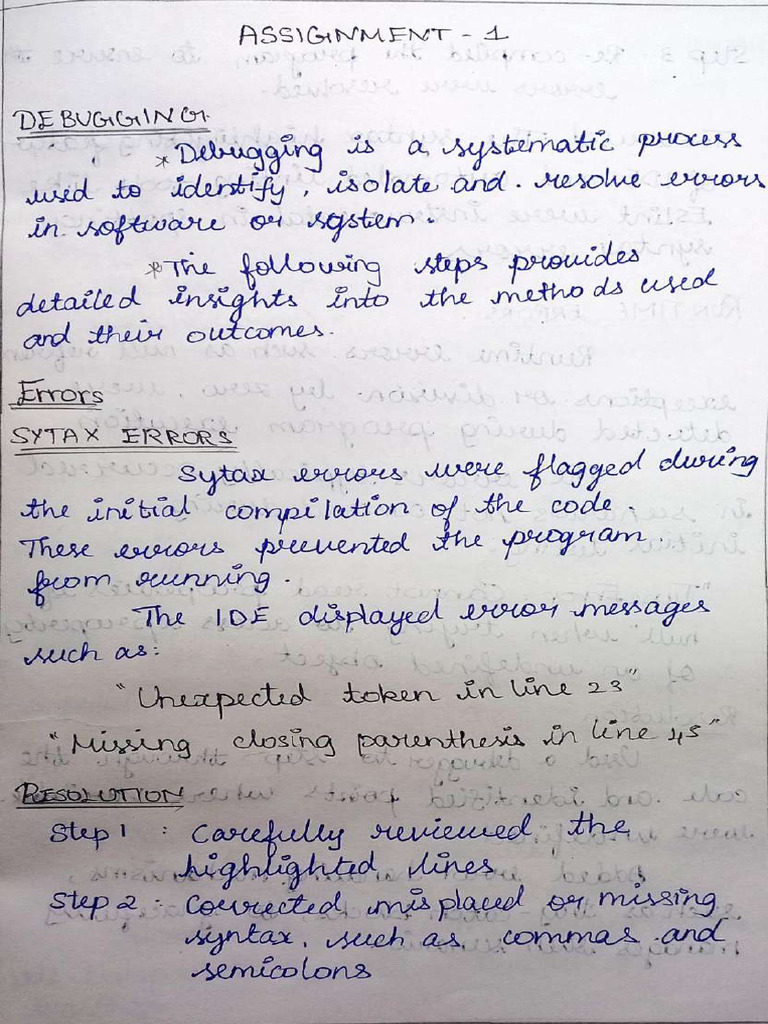 ASSIGNMENT - 1
DEBUGGING.
* Debugging is a systematic process
used to identify, isolate and resolve errors
in software or system.
* The following steps provides
detailed insights into the methods used
and their outcomes.
Errors
SYTAX ERRORS
Sytax errors were flagged during
the initial compilation of the code.
These errors prevented the program.
from running.
The IDE displayed error messages
such as:
"Unexpected token in line 23"
"Missing closing parenthesis in line 45"
RESOLUTION
Step 1 : Carefully reviewed the
highlighted lines
Step 2 : Corrected misplaced or missing
syntax, such as commas and
semicolons